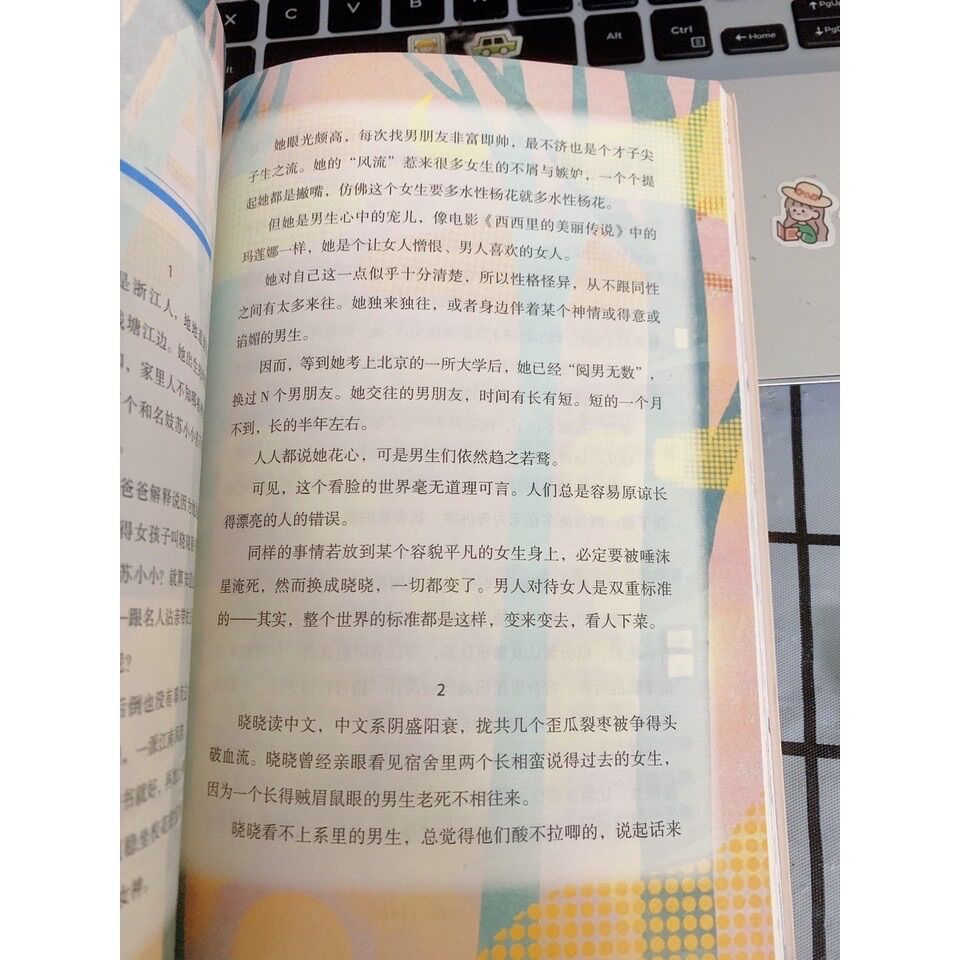 X
C
V
B
N
M
Alt
Ctrl
Home
PgUp
1
是浙江人，地地道
塘江边。她出生
，家里人不知哪
个和名妓苏小小
爸爸解释说因为
得女孩子叫晓晓
苏小小？就算
跟名人沾亲带
呢？
后倒也没有辜
，一派江南风
书就好，
女神。
她眼光颇高，每次找男朋友非富即帅，最不济也是个才子尖
子生之流。她的“风流”惹来很多女生的不屑与嫉妒，一个个提
起她都是撇嘴，仿佛这个女生要多水性杨花就多水性杨花。
但她是男生心中的宠儿，像电影《西西里的美丽传说》中的
玛莲娜一样，她是个让女人憎恨、男人喜欢的女人。
她对自己这一点似乎十分清楚，所以性格怪异，从不跟同性
之间有太多来往。她独来独往，或者身边伴着某个神情或得意或
谄媚的男生。
因而，等到她考上北京的一所大学后，她已经“阅男无数”，
换过 N 个男朋友。她交往的男朋友，时间有长有短。短的一个月
不到，长的半年左右。
人人都说她花心，可是男生们依然趋之若鹜。
可见，这个看脸的世界毫无道理可言。人们总是容易原谅长
得漂亮的人的错误。
同样的事情若放到某个容貌平凡的女生身上，必定要被唾沫
星淹死，然而换成晓晓，一切都变了。男人对待女人是双重标准
的——其实，整个世界的标准都是这样，变来变去，看人下菜。
2
晓晓读中文，中文系阴盛阳衰，拢共几个歪瓜裂枣被争得头
破血流。晓晓曾经亲眼看见宿舍里两个长相蛮说得过去的女生，
因为一个长得贼眉鼠眼的男生老死不相往来。
晓晓看不上系里的男生，总觉得他们酸不拉唧的，说起话来